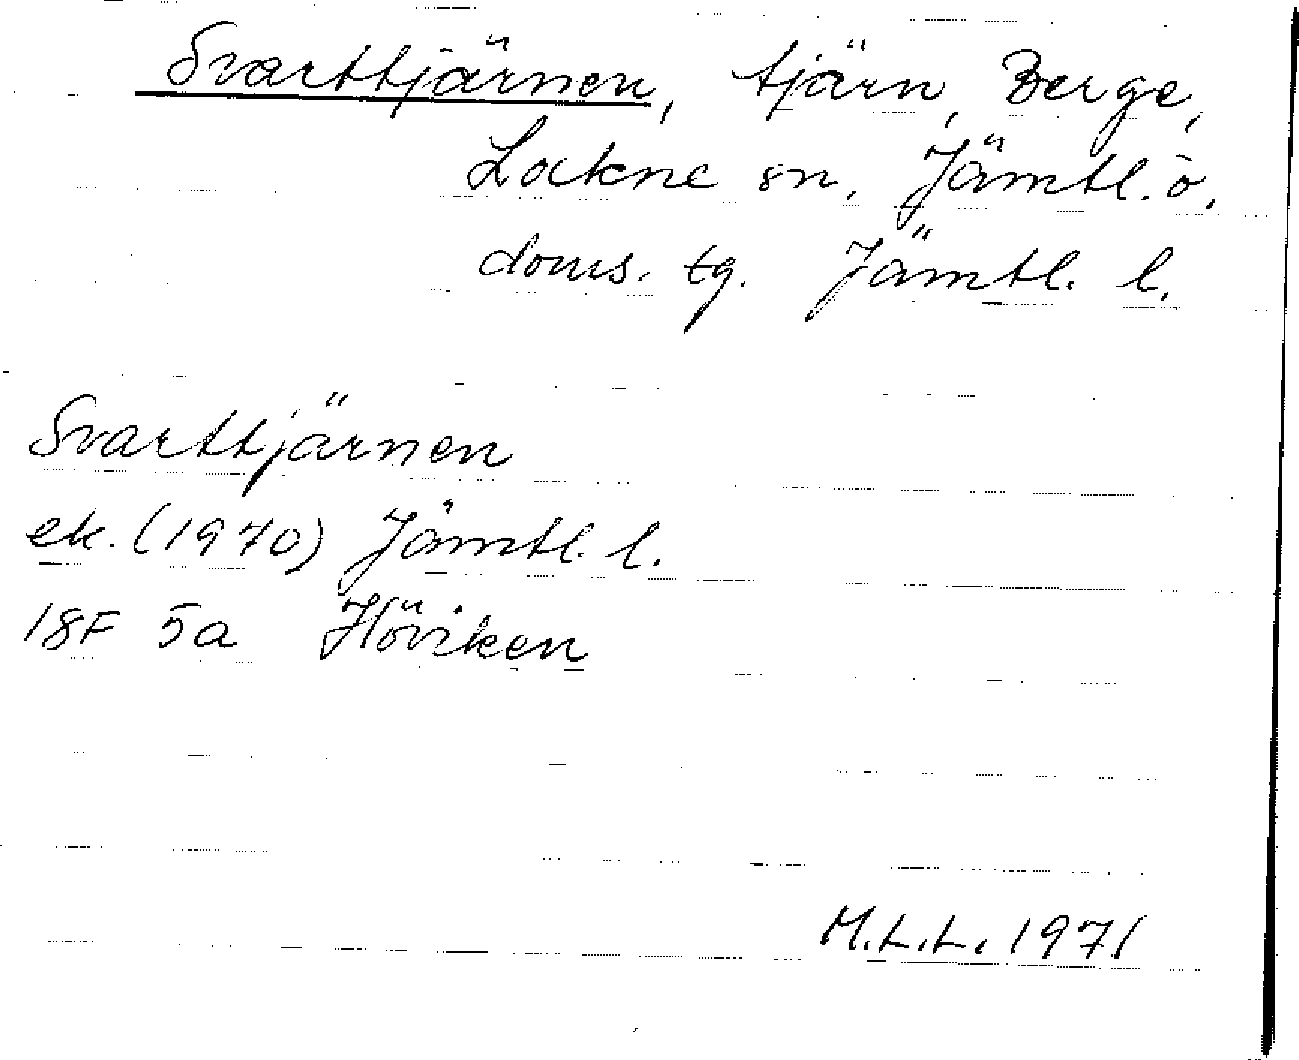 Svarttjärnen, tjärn, Berge,
Lockne sn, Jämtl. ö.
doms. tg. Jämtl. l.
Svarttjärnen
ek. (1970) Jämtl. l.
18F 5a Höviken
M.L.L. 1971